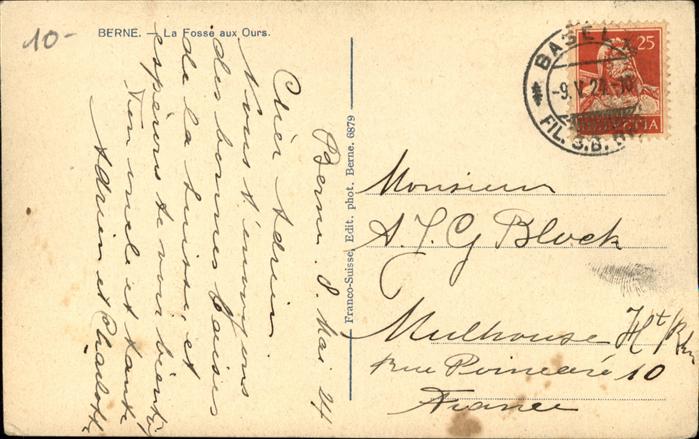 10-
BERNE. — La Fosse aux Ours.
Berne. 8. Mai. 24
Chèr Adrien.
Nous t'envoyons
des bonnes baises
de la Suisse, et
espérons te voir bientôt
Ton oncle et tante
Adrien et Charlotte
Franco-Suisse, Edit. phot. Berne. 6879
BASEL
-9.V.24.-10
FIL. S.B.B.
25
HELVETIA
Monsieur
A. J. G Block
Mulhouse Ht/Rhin
rue Poincaré 10
France